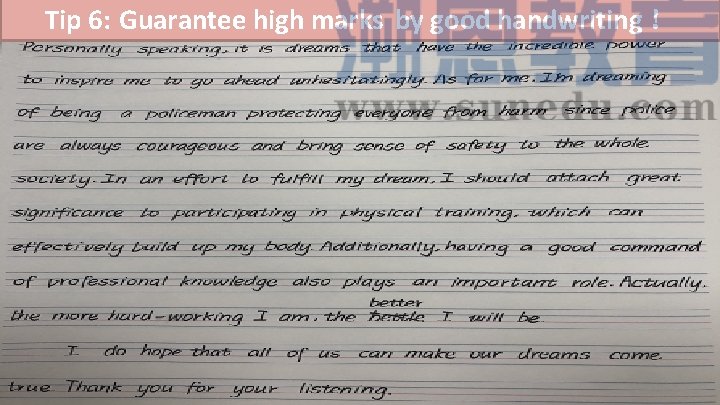 Tip 6: Guarantee high marks by good handwriting !
Personally speaking, it is dreams that have the incredible power
to inspire me to go ahead unhesitatingly. As for me, I'm dreaming
of being a policeman protecting everyone from harm since police
are always courageous and bring sense of safety to the whole
society. In an effort to fulfill my dream, I should attach great
significance to participating in physical training, which can
effectively build up my body. Additionally, having a good command
of professional knowledge also plays an important role. Actually,
better
the more hard-working I am, the bettle I will be
I do hope that all of us can make our dreams come
true Thank you for your listening.
www.sunedu.com